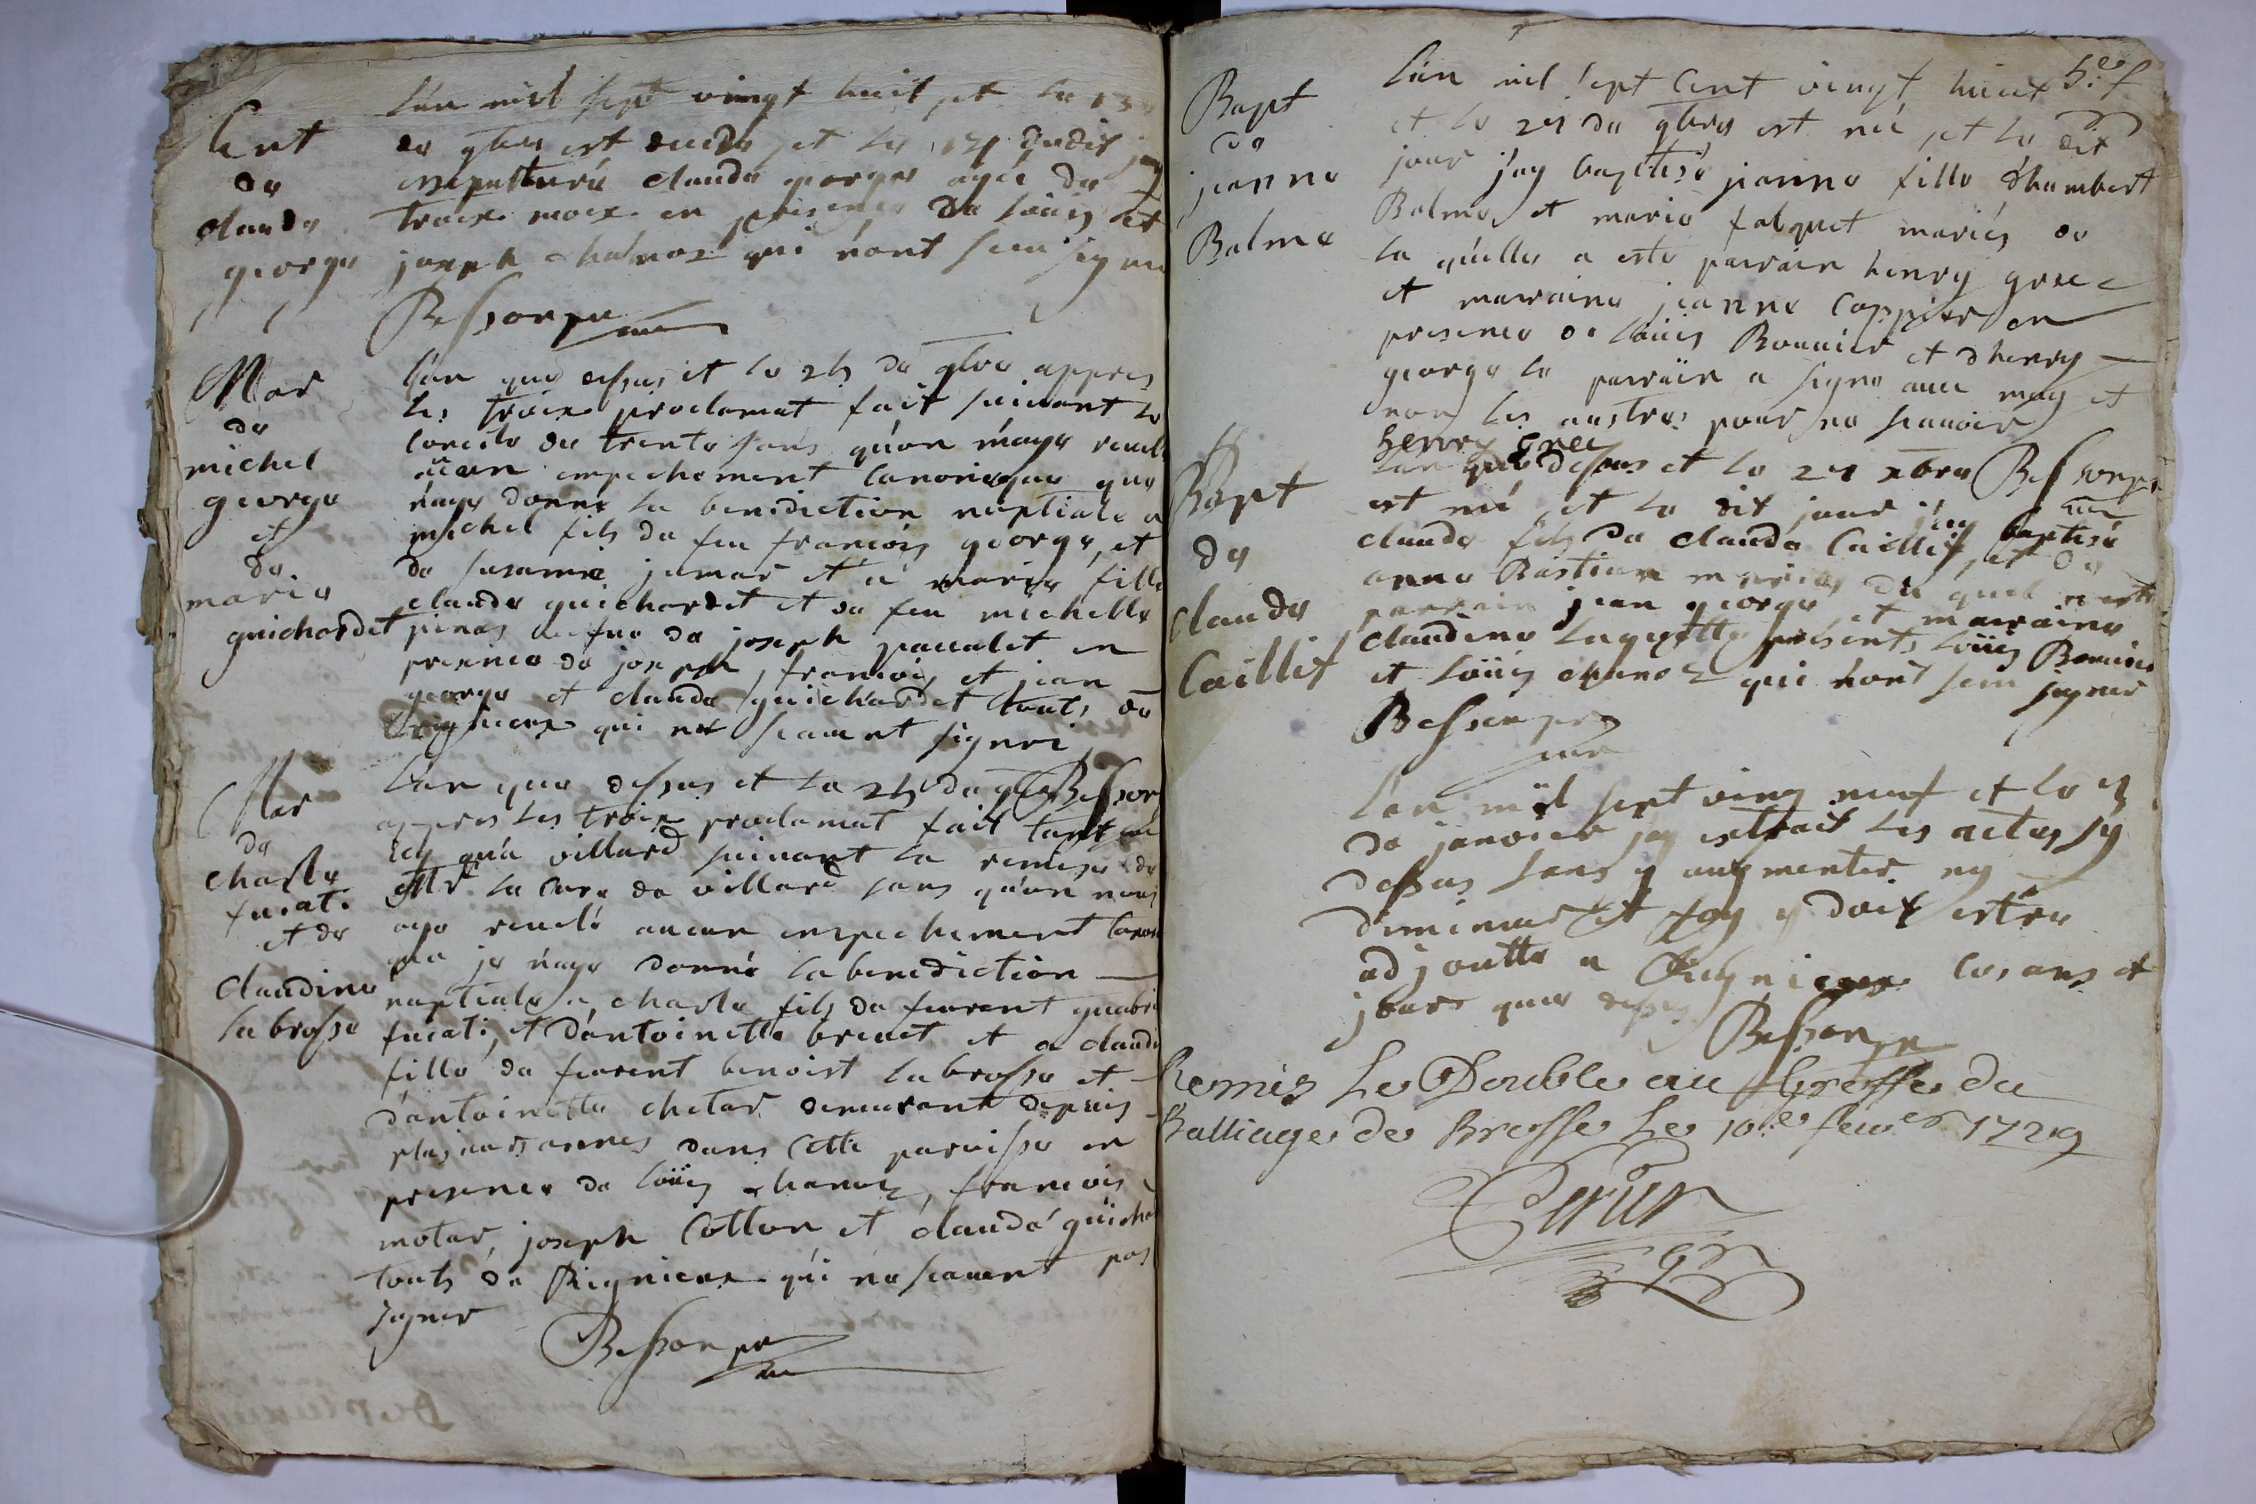 Ent
de
claude
george
L'an mil sept vingt huit et le 13
de 9bre est decede et le 14 dudit jay
ensepulturé claude george agée de
troix moix en presence de loüis et
joseph chaneoz qui n'ont sceu signer
Besson pre
cure
Mar
de
michel
george
et
de
marie
guichardet
L'an que dessus et le 25 de 9bre appres
les troix proclamat fait suivant le
concile de trente sans qu'on m'aye revelé
aucun empechement canonique que
j'aye donné la benediction nuptiale a
michel fils de feu françois george, et
de susanne jumar et a marie fille
claude guichardet et de feu michelle
pinas veufve de joseph paccalet en
presence de joseph, françois et jean
george et claude guichardet touts de
Rignieux qui ne scavent signer
Besson
Mar
de
charle
fucati
et de
claudine
labrosse
L'an que dessus et le 25 de 9bre
appres les troix proclamat fait tant
icy qu'a villard suivant la remise de
Mr le curé de villard sans qu'on nous
aye revelé aucun empechement
que je n'aye donné la benediction
nuptiale a charle fils de feurent
fucati, et d'antoinette brevet et a claudine
fille de feurent benoist labrosse et
d'antoinette chetar demeurant depuis
plusieurs annes dans cette paroisse en
presence de loüis chaneoz, françois
motar, joseph Cotton et claude guichardet
touts de Rignieux qui ne scavent pas
signer
Besson pre
cure
Bapt
de
jeanne
Balme
L'an mil sept cent vingt huict
et le 21 de 9bre est née et le dit
jour j'ay baptisé jeanne fille d'humbert
Balme et marie falquet mariés de
la quelle a este parrain henry grec
et marraine jeanne Coppier en
presence de loüis Bouvier et d'henry
george le parrain a signe avec moy et
non les austres pour ne scavoir
henry Grec
Besson pre
cure
Bapt
de
claude
Caillit
L'an que dessus et le 21 xbre
est né et le dit jour j'ay baptisé
claude fils de claude Caillit et de
anne Bastian mariés du quel a este
parrain jean george et marraine
claudine presents loüis Bouvier
et loüis chaneoz qui n'ont sceu signer
Besson pre
cure
L'an mil sept ving neuf et le
de janvier jay extrait les actes sy
dessus sans y augmenter ny
diminuer et foy y doit estre
adjoutte a Rignieux les ans et
jours que dessus
Besson pre
Remis Le Double au Greffe du
Balliage de Bresse Le 10e fevr 1729